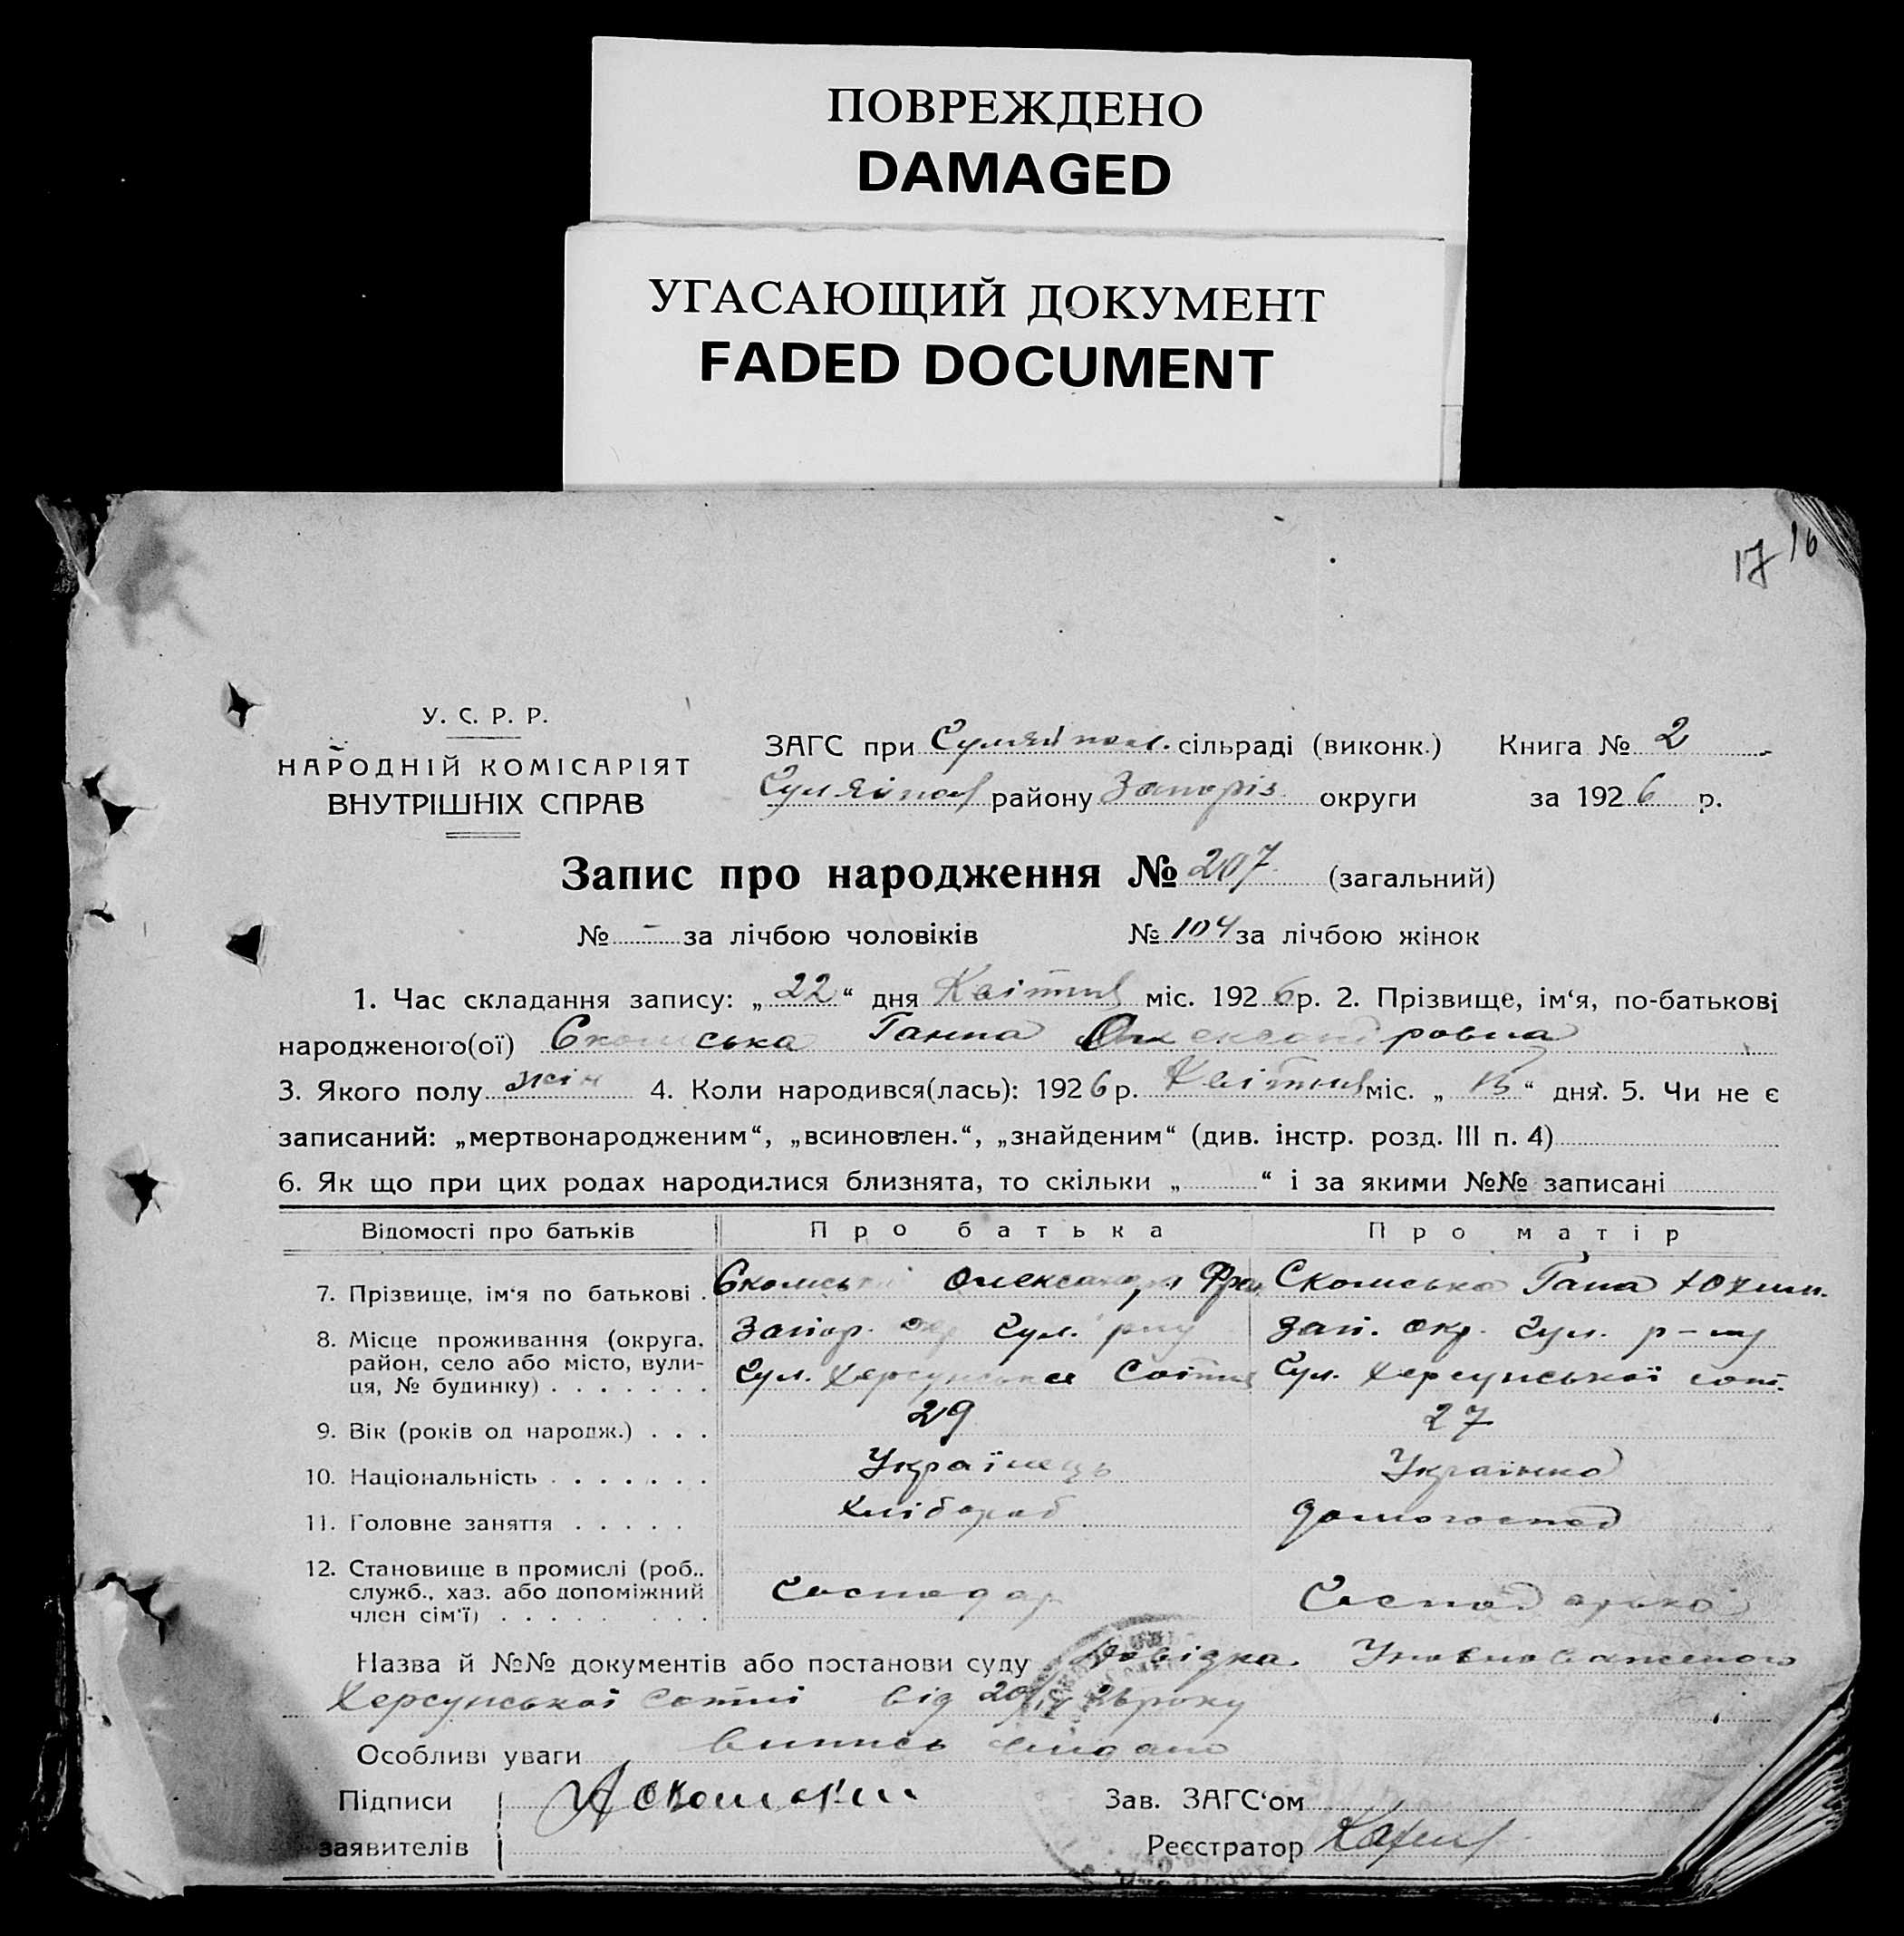 ПОВРЕЖДЕНО
DAMAGED
УГАСАЮЩИЙ ДОКУМЕНТ
FADED DOCUMENT
17 16
У. С. Р. Р.
НАРОДНІЙ КОМІСАРІЯТ
ВНУТРІШНІХ СПРАВ
ЗАГС при Гуляйпол. сільраді (виконк.) Книга № 2
Гуляйпол району Запоріз округи за 1926 р.
Запис про народження № 207 (загальний)
№ - за лічбою чоловіків № 104 за лічбою жінок
1. Час складання запису: „22“ дня Квітня міс. 1926 р. 2. Прізвище, ім‘я, по-батькові
народженого(ої) Скомська Ганна Олександровна
3. Якого полу жін 4. Коли народився(лась): 1926 р. Квітня міс. „ “ дня. 5. Чи не є
записаний: „мертвонародженим“, „всиновлен.“, „знайденим“ (див. інстр. розд. III п. 4)
6. Як що при цих родах народилися близнята, то скільки „ “ і за якими №№ записані
Відомості про батьків Про батька Про матір
7. Прізвище, ім‘я по батькові . Скомськ Олександр Фра Скомська Гана Юхим.
8. Місце проживання (округа, Запор. окр Гул. р-ну Зап. окр. Гул. р-ну
район, село або місто, вули-
ця, № будинку) . . . . . . . Гул. Херсунська Сотня Гул. Херсунської сот.
9. Вік (років од народж.) . . . 29 27
10. Національність . . . . . . . Українець Українка
11. Головне заняття . . . . . Хлібороб домогоспод
12. Становище в промислі (роб.,
служб., хаз. або допоміжний Господар Господарька
член сім‘ї) . . . . . . . . .
Назва й №№ документів або постанови суду Довідка Уповноваженого
Херсунської Сотні від 20/IV 26 року
Особливі уваги Випись видано
Підписи АСкомский Зав. ЗАГС‘ом
заявителів Реєстратор